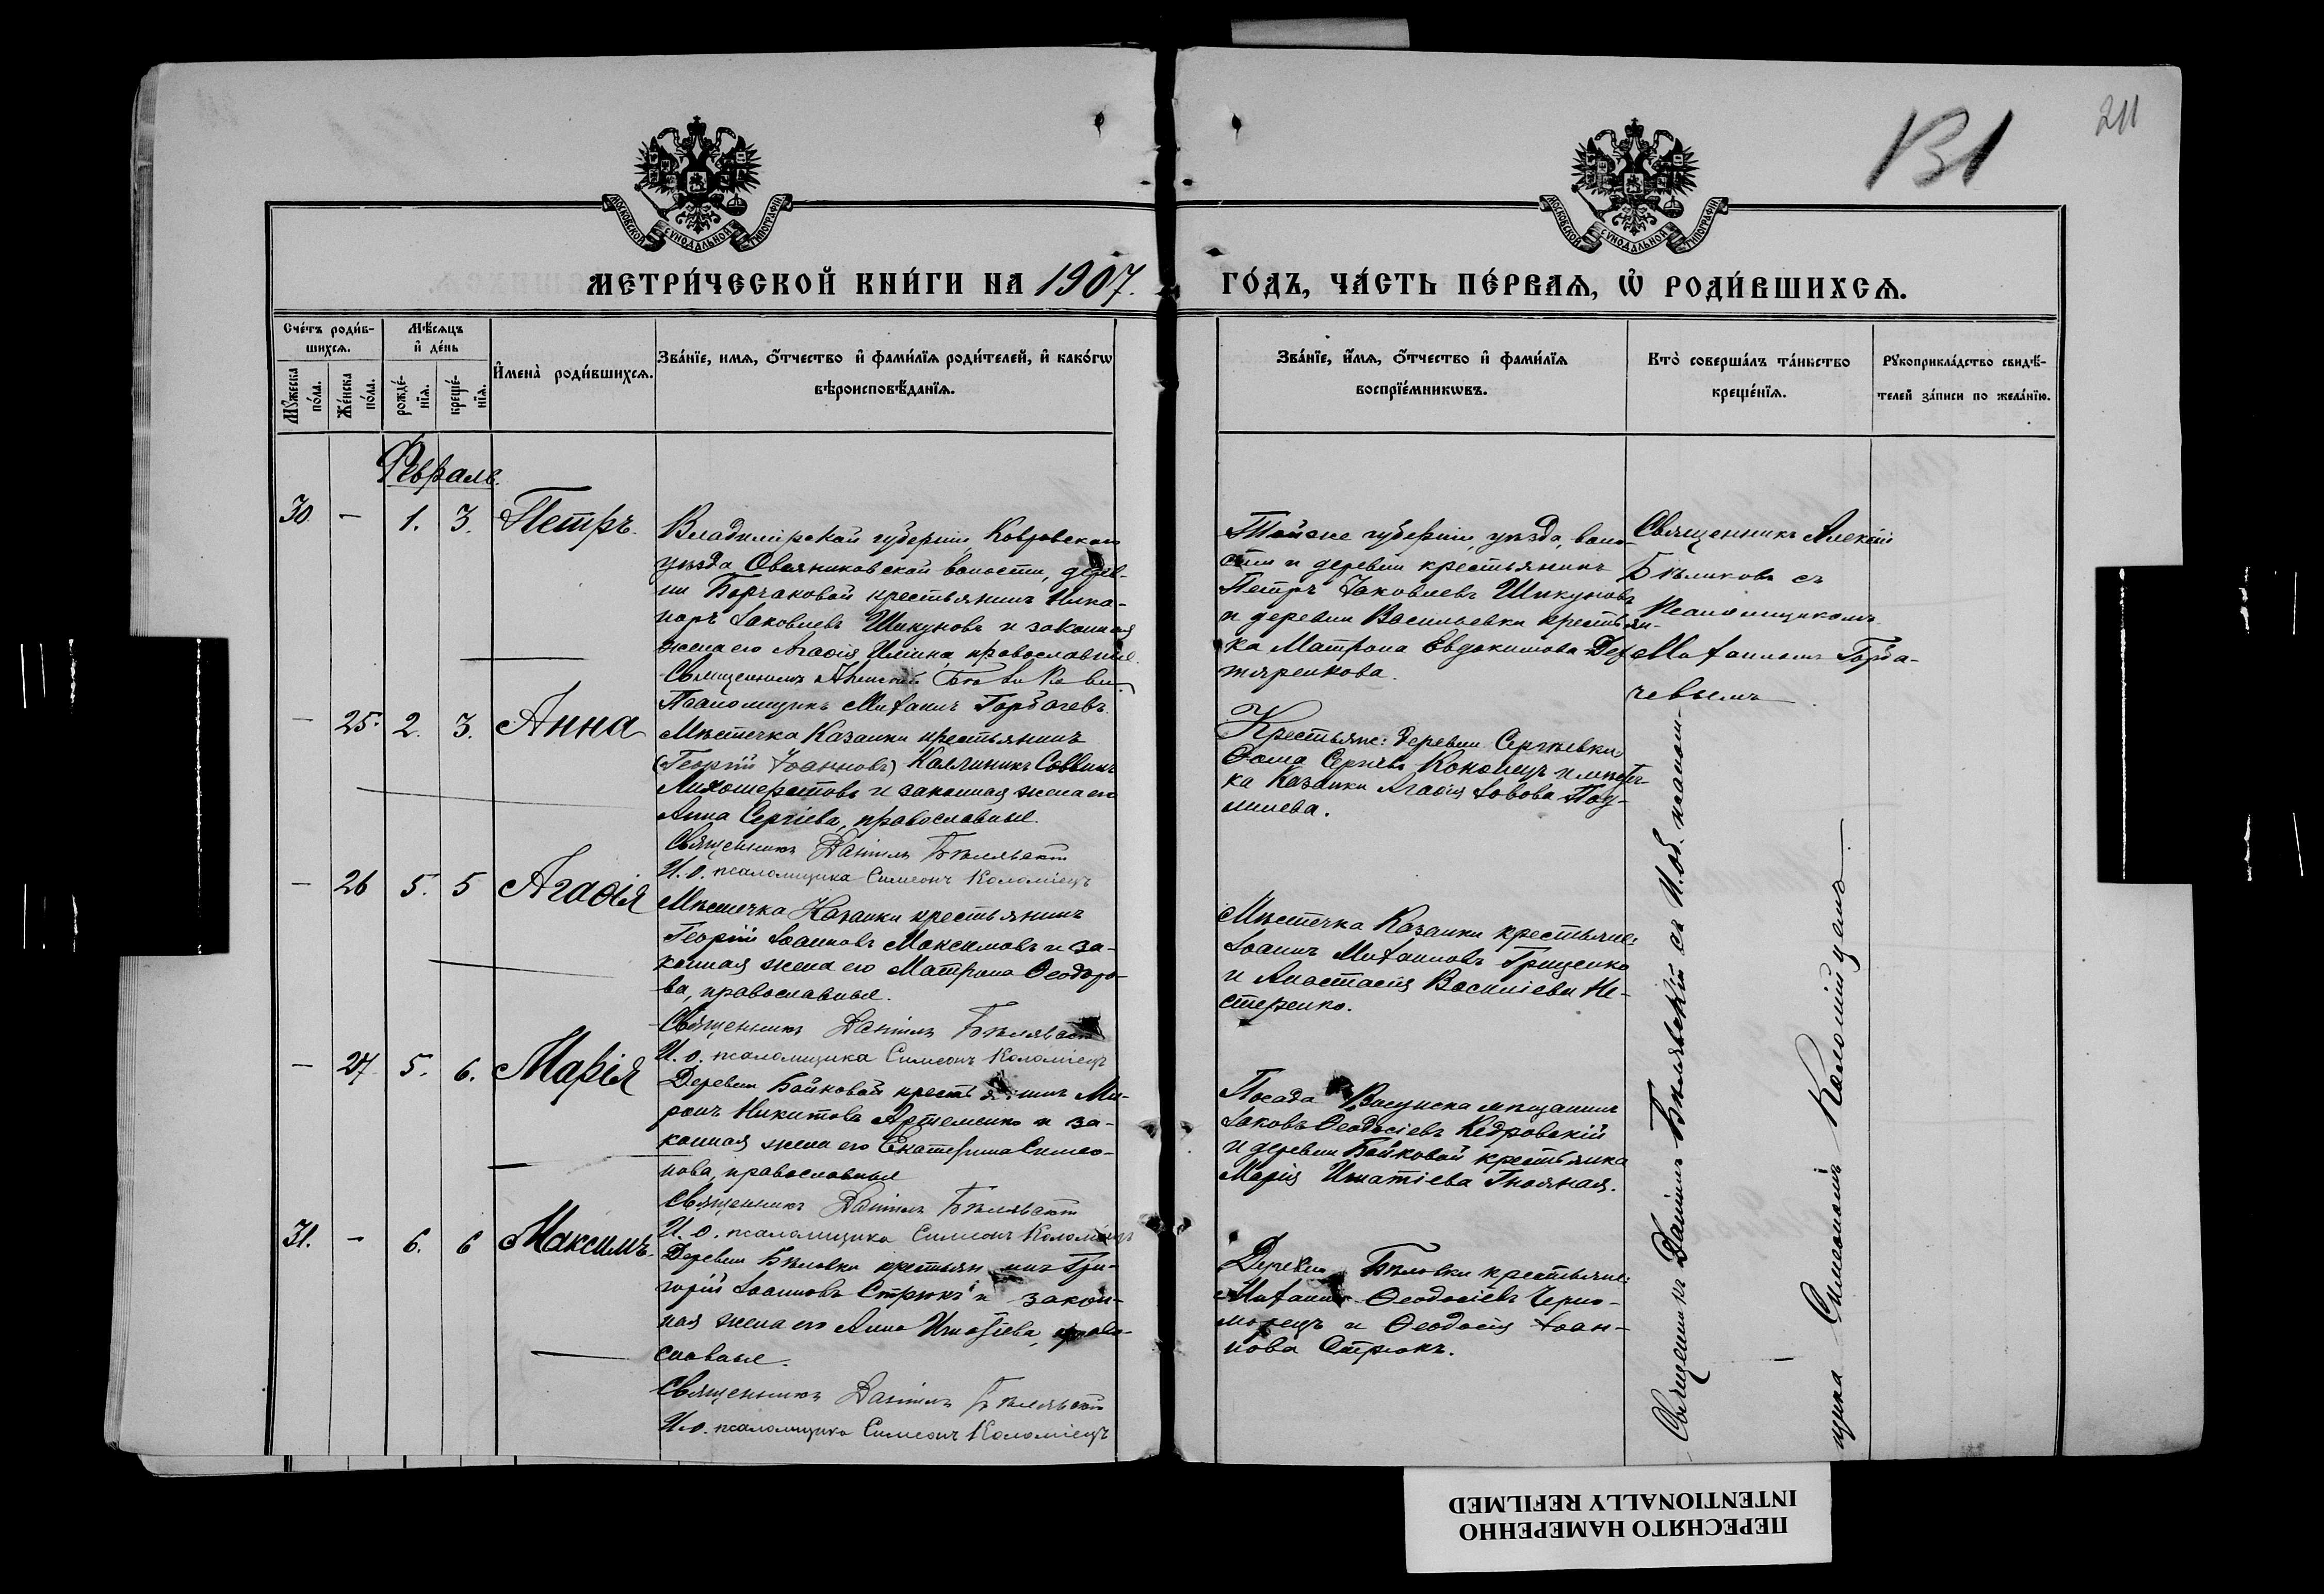 131
211
МОСКОВСКОЙ СѴНОДАЛЬНОЙ ТИПОГРАФІИ
МОСКОВСКОЙ СѴНОДАЛЬНОЙ ТИПОГРАФІИ
МЕТРИ́ЧЕСКОЙ КНИ́ГИ НА 1907. ГО́ДЪ, ЧА́СТЬ ПЕ́РВАѦ, Ѡ РОДИ́ВШИХСѦ.
Сче́тъ роди́в-
шихсѧ.
Мѣ́сѧцъ
и҆ де́нь
Мꙋ́жеска
по́ла.
Же́нска
по́ла.
рожде́-
нїѧ.
креще́-
нїѧ.
И҆мена̀ роди́вшихсѧ.
Зва́нїе, имѧ, ѻ҆́тчество и҆ фами́лїѧ роди́телей, и҆ како́гѡ
вѣроисповѣ́данїѧ.
Зва́нїе, и҆́мѧ, ѻ҆́тчество и҆ фами́лїѧ
воспрїе́мникѡвъ.
Кто̀ соверша́лъ та́инство
креще́нїѧ.
Рꙋкоприкла́дство свидѣ́-
телей за́писи по жела́нїю.
Февраль.
30. — 1. 3. Петръ.
Владимірской губерніи Ковровскаго
уѣзда Овсяниковской волости, дерев-
ни Борчаковой крестьянинъ Ника-
норъ Іаковлевъ Шикуновъ и законная
жена его Агаѳія Иліина, православные.
Священникъ Алексій
Псаломщикъ Митаилъ Горбачевъ.
Тойже губерніи, уѣзда, воло-
сти и деревни крестьянинъ
Петръ Іаковлевъ Шикуновъ
и деревни Васильевки крестьян-
ка Матрона Евдокимова Дех-
тяренкова.
Священникъ Алексій
Бѣликовъ съ
Псаломщикомъ
Михаиломъ Горба-
чевымъ
— 25. 2. 3. Анна
Мѣстечка Казанки крестьянинъ
(Георгій Іоанновъ) Каллиникъ Саввинъ
Лихошерстовъ и законная жена его
Анна Сергіева, православные.
Священникъ Даніилъ Бѣлявскій
И. о. псаломщика Симеонъ Коломіецъ
Крестьяне: деревни Сергѣевки
Ѳома Сергіевъ Кононецъ и мѣстеч-
ка Казанки Агаѳія Іовова
— 26 5. 5 Агаѳія
Мѣстечка Казанки крестьянинъ
Георгій Іоанновъ Максимовъ и за-
конная жена его Матрона Ѳеодоро-
ва, православные.
Священникъ Даніилъ Бѣлявскій
И. о. псаломщика Симеонъ Коломіецъ
Мѣстечка Казанки крестьяне:
Іоаннъ Михаиловъ Гриценко
и Анастасія Василіева Не-
стеренко.
— 27. 5. 6. Марія
Деревни Бойковой крестьянинъ Ми-
ронъ Никитовъ Артеменко и за-
конная жена его Екатерина Симео-
нова, православные
Священникъ Даніилъ Бѣлявскій
И. о. псаломщика Симеонъ Коломіецъ
Посада мѣщанинъ
Іаковъ Ѳеодосіевъ Кедровскій
и деревни Бойковой крестьянка
Марія Игнатіева Гнояная.
31. — 6. 6 Максимъ.
Деревни Бѣловки крестьянинъ Гри-
горій Іоанновъ Стрюкъ и закон-
ная жена его Анна Игнатіева, право-
славные.
Священникъ Даніилъ Бѣлявскій
И. о. псаломщика Симеонъ Коломіецъ
Деревни Бѣловки крестьяне:
Михаилъ Ѳеодосіевъ Черно-
морецъ и Ѳеодосія Іоан-
нова Стрюкъ.
Священникъ Даніилъ Бѣлявскій съ И. об. псалом-
щика Симеономъ Коломійцемъ
ПЕРЕСНЯТО НАМЕРЕННО
INTENTIONALLY REFILMED